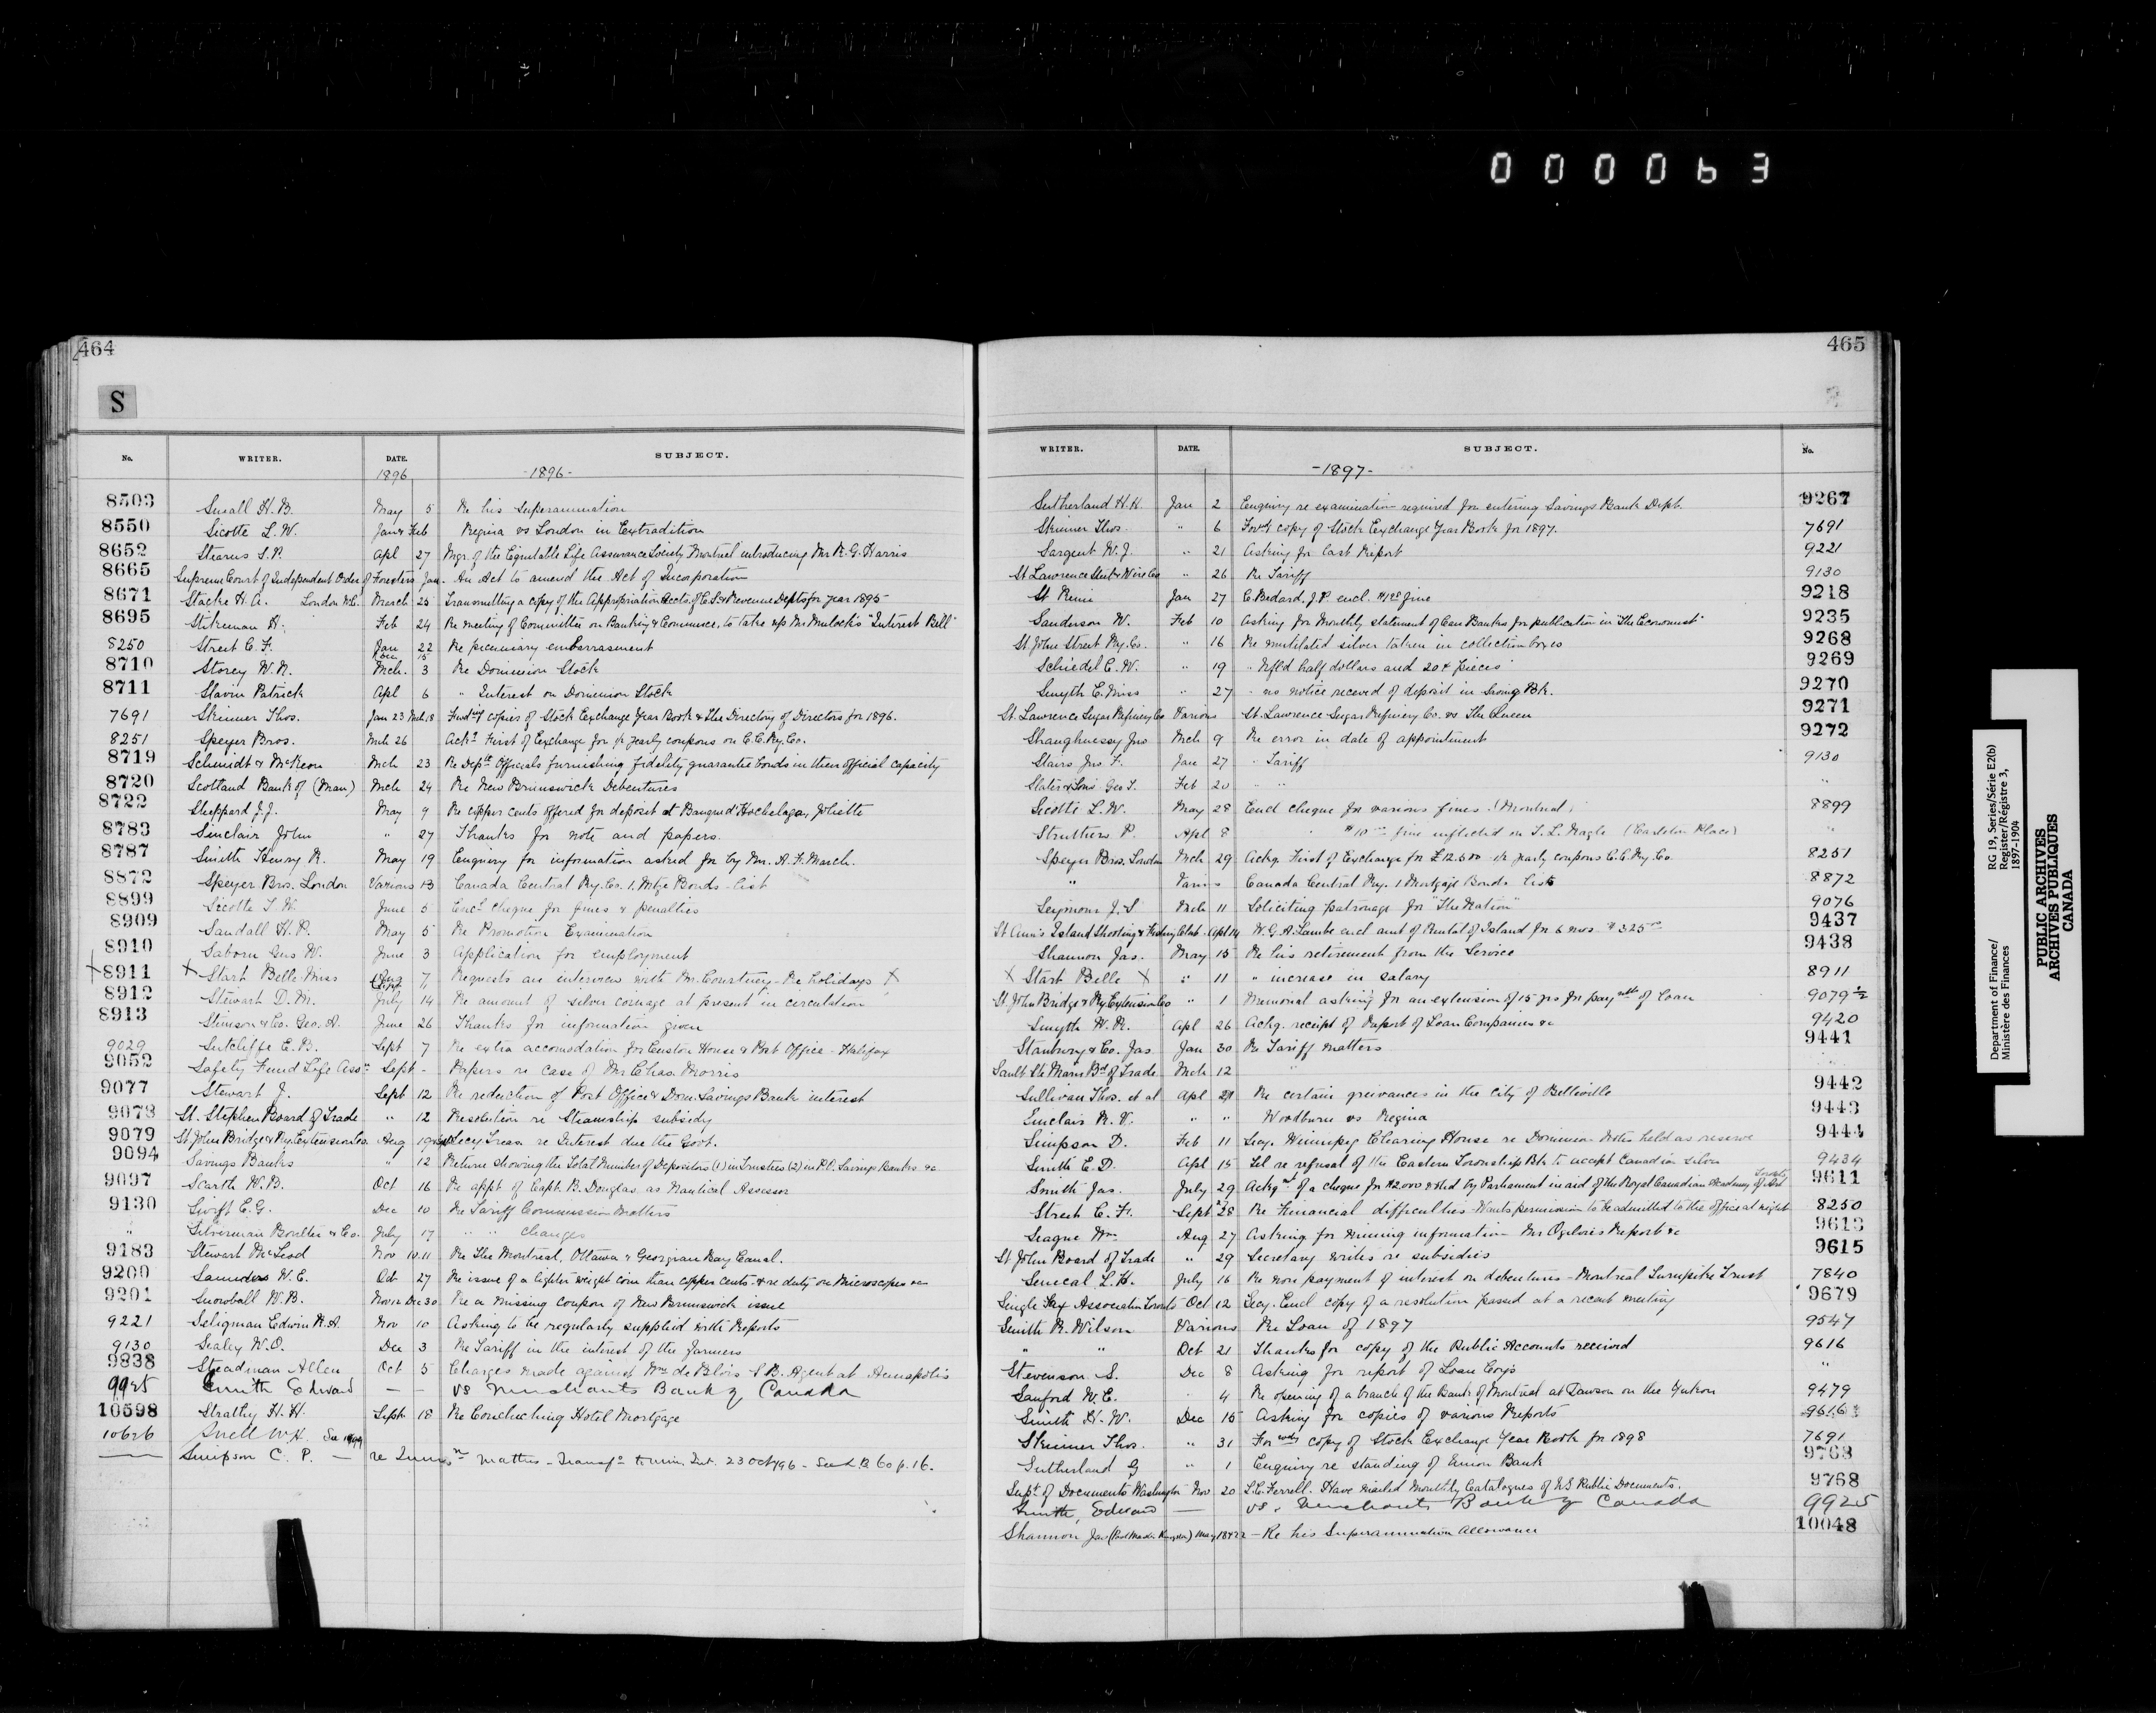 000063
464
S
No. WRITER. DATE. SUBJECT.
1896 -1896-
8503 Small H. B. May 5 Re his Superannuation
8550 Sicotte L. W. Jan & Feb Regina vs London in Extradition
8652 Stearns S. P. Apl 27 Mgr. of the Equitable Life Assurance Society Montreal introducing Mr R. G. Harris
8665 Supreme Court of Independent Order of Foresters Jan. An Act to amend the Act of Incorporation
8671 Stacke H. A. London March 25 Transmitting a copy of the Appropriation Accts. of C.S. & Revenue Depts for year 1895
8695 Stikeman H. Feb 24 Re meeting of Committee on Banking & Commerce, to take up Mr Mulock's "Interest Bill"
8250 Street C. F. Jan 22 Dec 15 Re pecuniary embarrasment
8710 Storey W. N. Mch. 3 Re Dominion Stock
8711 Slavin Patrick Apl 6 " Interest on Dominion Stock
7691 Skinner Thos. Jan 23 Mch 18 Fwd'g copies of Stock Exchange Year Book & The Directory of Directors for 1896.
8251 Speyer Bros. Mch 26 Ack'g First of Exchange for ½ yearly coupons on C.C. Ry. Co.
8719 Schmidt & McKeon Mch 23 Re Deptl Officials furnishing fidelity guarantee bonds in their official capacity
8720 Scotland Bank of (Man) Mch 24 Re New Brunswick Debentures
8722 Sheppard J. J. May 9 Re copper cents offered for deposit at Banque d'Hochelaga, Joliette
8783 Sinclair John " 27 Thanks for note and papers.
8787 Smith Henry R. May 19 Enquiry for information asked for by Mr. A. F. March.
8872 Speyer Bros. London Various 13 Canada Central Ry. Co. 1. Mtge Bonds - list
8899 Sicotte L. W. June 5 Encl. cheque for fines & penalties
8909 Sandall H. P. May 5 Re Promotion Examination
8910 Saborn Gus W. June 3 Application for employment
X 8911 X Start Belle Miss Aug Sept 7 Requests an interview with Mr. Courtney - Re holidays X
8912 Stewart D. M. July 14 Re amount of silver coinage at present in circulation
8913 Stimson & Co. Geo. A. June 26 Thanks for information given
9029 Sutcliffe E. B. Sept 7 Re extra accomodation for Custom House & Post Office - Halifax
9052 Safety Fund Life Assn Sept - Papers re case of Mr Chas. Morris
9077 Stewart J. Sept 12 Re reduction of Post Office & Dom. Savings Bank interest
9078 St. Stephen Board of Trade " 12 Resolution re Steamship subsidy
9079 St John Bridge & Ry. Extension Co. Aug 19 Secy Treas. re Interest due the Govt.
9094 Savings Banks " 12 Return showing the Total Number of Depositors (1) in Trustees (2) in P.O. Savings Banks &c
9097 Scarth W. B. Oct 16 Re appt. of Capt. B. Douglas as Nautical Assessor
9130 Swift E. G. Dec 10 Re Tariff Commission Matters
" Silverman Boulter & Co. July 17 " " changes
9183 Stewart McLeod Nov 10.11 Re The Montreal, Ottawa & Georgian Bay Canal.
9200 Saunders W. E. Oct 27 Re issue of a lighter weight coin than copper cents - & re duty on Microscopes &c
9201 Snowball W. B. Nov 12 Dec 30 Re a missing coupon of New Brunswick issue
9221 Seligman Edwin R. A. Nov 10 Asking to be regularly supplied with Reports
9130 Sealey W. O. Dec 3 Re Tariff in the interest of the farmers
9838 Steadman Allen Oct 5 Charges made against Wm de Blois S.B. Agent at Annapolis
9925 Smith Edward — — vs Merchants Bank of Canada
10598 Strathy H. H. Sept 18 Re Couchiching Hotel Mortgage
10626 Snell W. H. See 1899
— Simpson C. P. — re Matters - Transf'd to Int. 23 Oct/96 - See L.B. 60 p. 16.
465
WRITER. DATE. SUBJECT. No.
-1897-
Sutherland H. H. Jan 2 Enquiry re examination required for entering Savings Bank Dept. 9267
Skinner Thos. " 6 Forw'g copy of Stock Exchange Year Book for 1897. 7691
Sargent W. J. " 21 Asking for last Report 9221
St Lawrence Steel & Wire Co " 26 Re Tariff 9130
St Remi Jan 27 C. Bedard, J.P. encl. fine 9218
Sanderson W. Feb 10 Asking for Monthly statement of Can Banks for publication in "The Economist" 9235
St John Street Ry. Co. " 16 Re mutilated silver taken in collection boxes 9268
Schiedel C. W. " 19 " Nfld half dollars and 20¢ pieces 9269
Smyth E. Miss " 27 " no notice receved of deposit in Saving Bk. 9270
St. Lawrence Sugar Refinery Co Various St. Lawrence Sugar Refinery Co. vs The Queen 9271
Shaughnessy Jno Mch 9 Re error in date of appointment 9272
Stairs Jno F. Jan 27 " Tariff 9130
Slater & Sons Geo T. Feb 20 " " "
Sicotte L. W. May 28 Encl cheque for various fines (Montreal) 8899
Struthers P. Apl 8 " $10 fine inflicted on T. L. Nagle (Carleton Place) "
Speyer Bros. London Mch 29 Ackg. First of Exchange for £12.500 ½ yearly coupons C.C. Ry. Co. 8251
" Various Canada Central Ry. 1 Mortgage Bonds lists 8872
Seymour J. S. Mch 11 Soliciting patronage for "The Nation" 9076
St Ann's Island Shooting & Fishing Club. Apl 14 W. G. A. Lambe encl amt of Rental of Island for 6 mos. $325 9437
Shannon Jas. May 15 Re his retirement from the Service 9438
X Start Belle X " 11 " increase in salary 8911
St John Bridge & Ry Extension Co " 1 Memorial asking for an extension of 15 yrs for paymt of loan 9079½
Smyth W. R. Apl 26 Ackg. receipt of Report of Loan Companies &c 9420
Stanbury & Co. Jas Jan 30 Re Tariff matters 9441
Sault Ste Marie Bd of Trade Mch 12 " "
Sullivan Thos. et al Apl 21 Re certain greivances in the City of Belleville 9442
Sinclair R. V. " " Woodburn vs Regina 9443
Simpson D. Feb 11 Secy. Winnipeg Clearing House re Dominion Notes held as reserve 9444
Smith E. D. Apl 15 Tel re refusal of the Eastern Townships Bk to accept Canadian silver 9434
Smith Jas. July 29 Ackgmt of a cheque for $2000 voted by Parliament in aid of the Royal Canadian Academy of Art Toronto 9611
Street C. F. Sept 28 Re Financial difficulties - Wants permission to be admitted to the office at night 8250
Seague Wm. Aug 27 Asking for mining information Mr Ogilvie's Report &c 9613
St John Board of Trade " 29 Secretary writes re subsidies 9615
Senecal L. H. July 16 Re non payment of interest on debentures - Montreal Turnpike Trust 7840
Single Tax Association Toronto Oct 12 Secy. Encl copy of a resolution passed at a recent meeting 9679
Smith R. Wilson Various Re Loan of 1897 9547
" " Oct 21 Thanks for copy of the Public Accounts received 9616
Stevenson S. Dec 8 Asking for report of Loan Coys "
Sanford W. E. " 4 Re opening of a branch of the Bank of Montreal at Dawson on the Yukon 9479
Smith H. W. Dec 15 Asking for copies of various Reports 9616
Skinner Thos. " 31 Forwdg copy of Stock Exchange Year Book for 1898 7691
Sutherland G " 1 Enquiry re standing of Union Bank 9763
Supt of Documents Washington Nov 20 L. C. Ferrell. Have mailed Monthly Catalogues of U.S Public Documents. 9768
Smith, Edward — vs. Merchants Bank of Canada 9925
Shannon Jas (Post Master Kingston) May 18 & 22 - Re his Superannuation Allowance 10048
Department of Finance/
Ministère des Finances
RG 19, Series/Série E2(b)
Register/Régistre 3,
1897-1904
PUBLIC ARCHIVES
ARCHIVES PUBLIQUES
CANADA